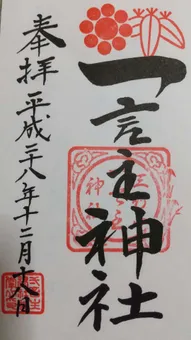 奉拝 平成二八年十二月十八日
一言主神社